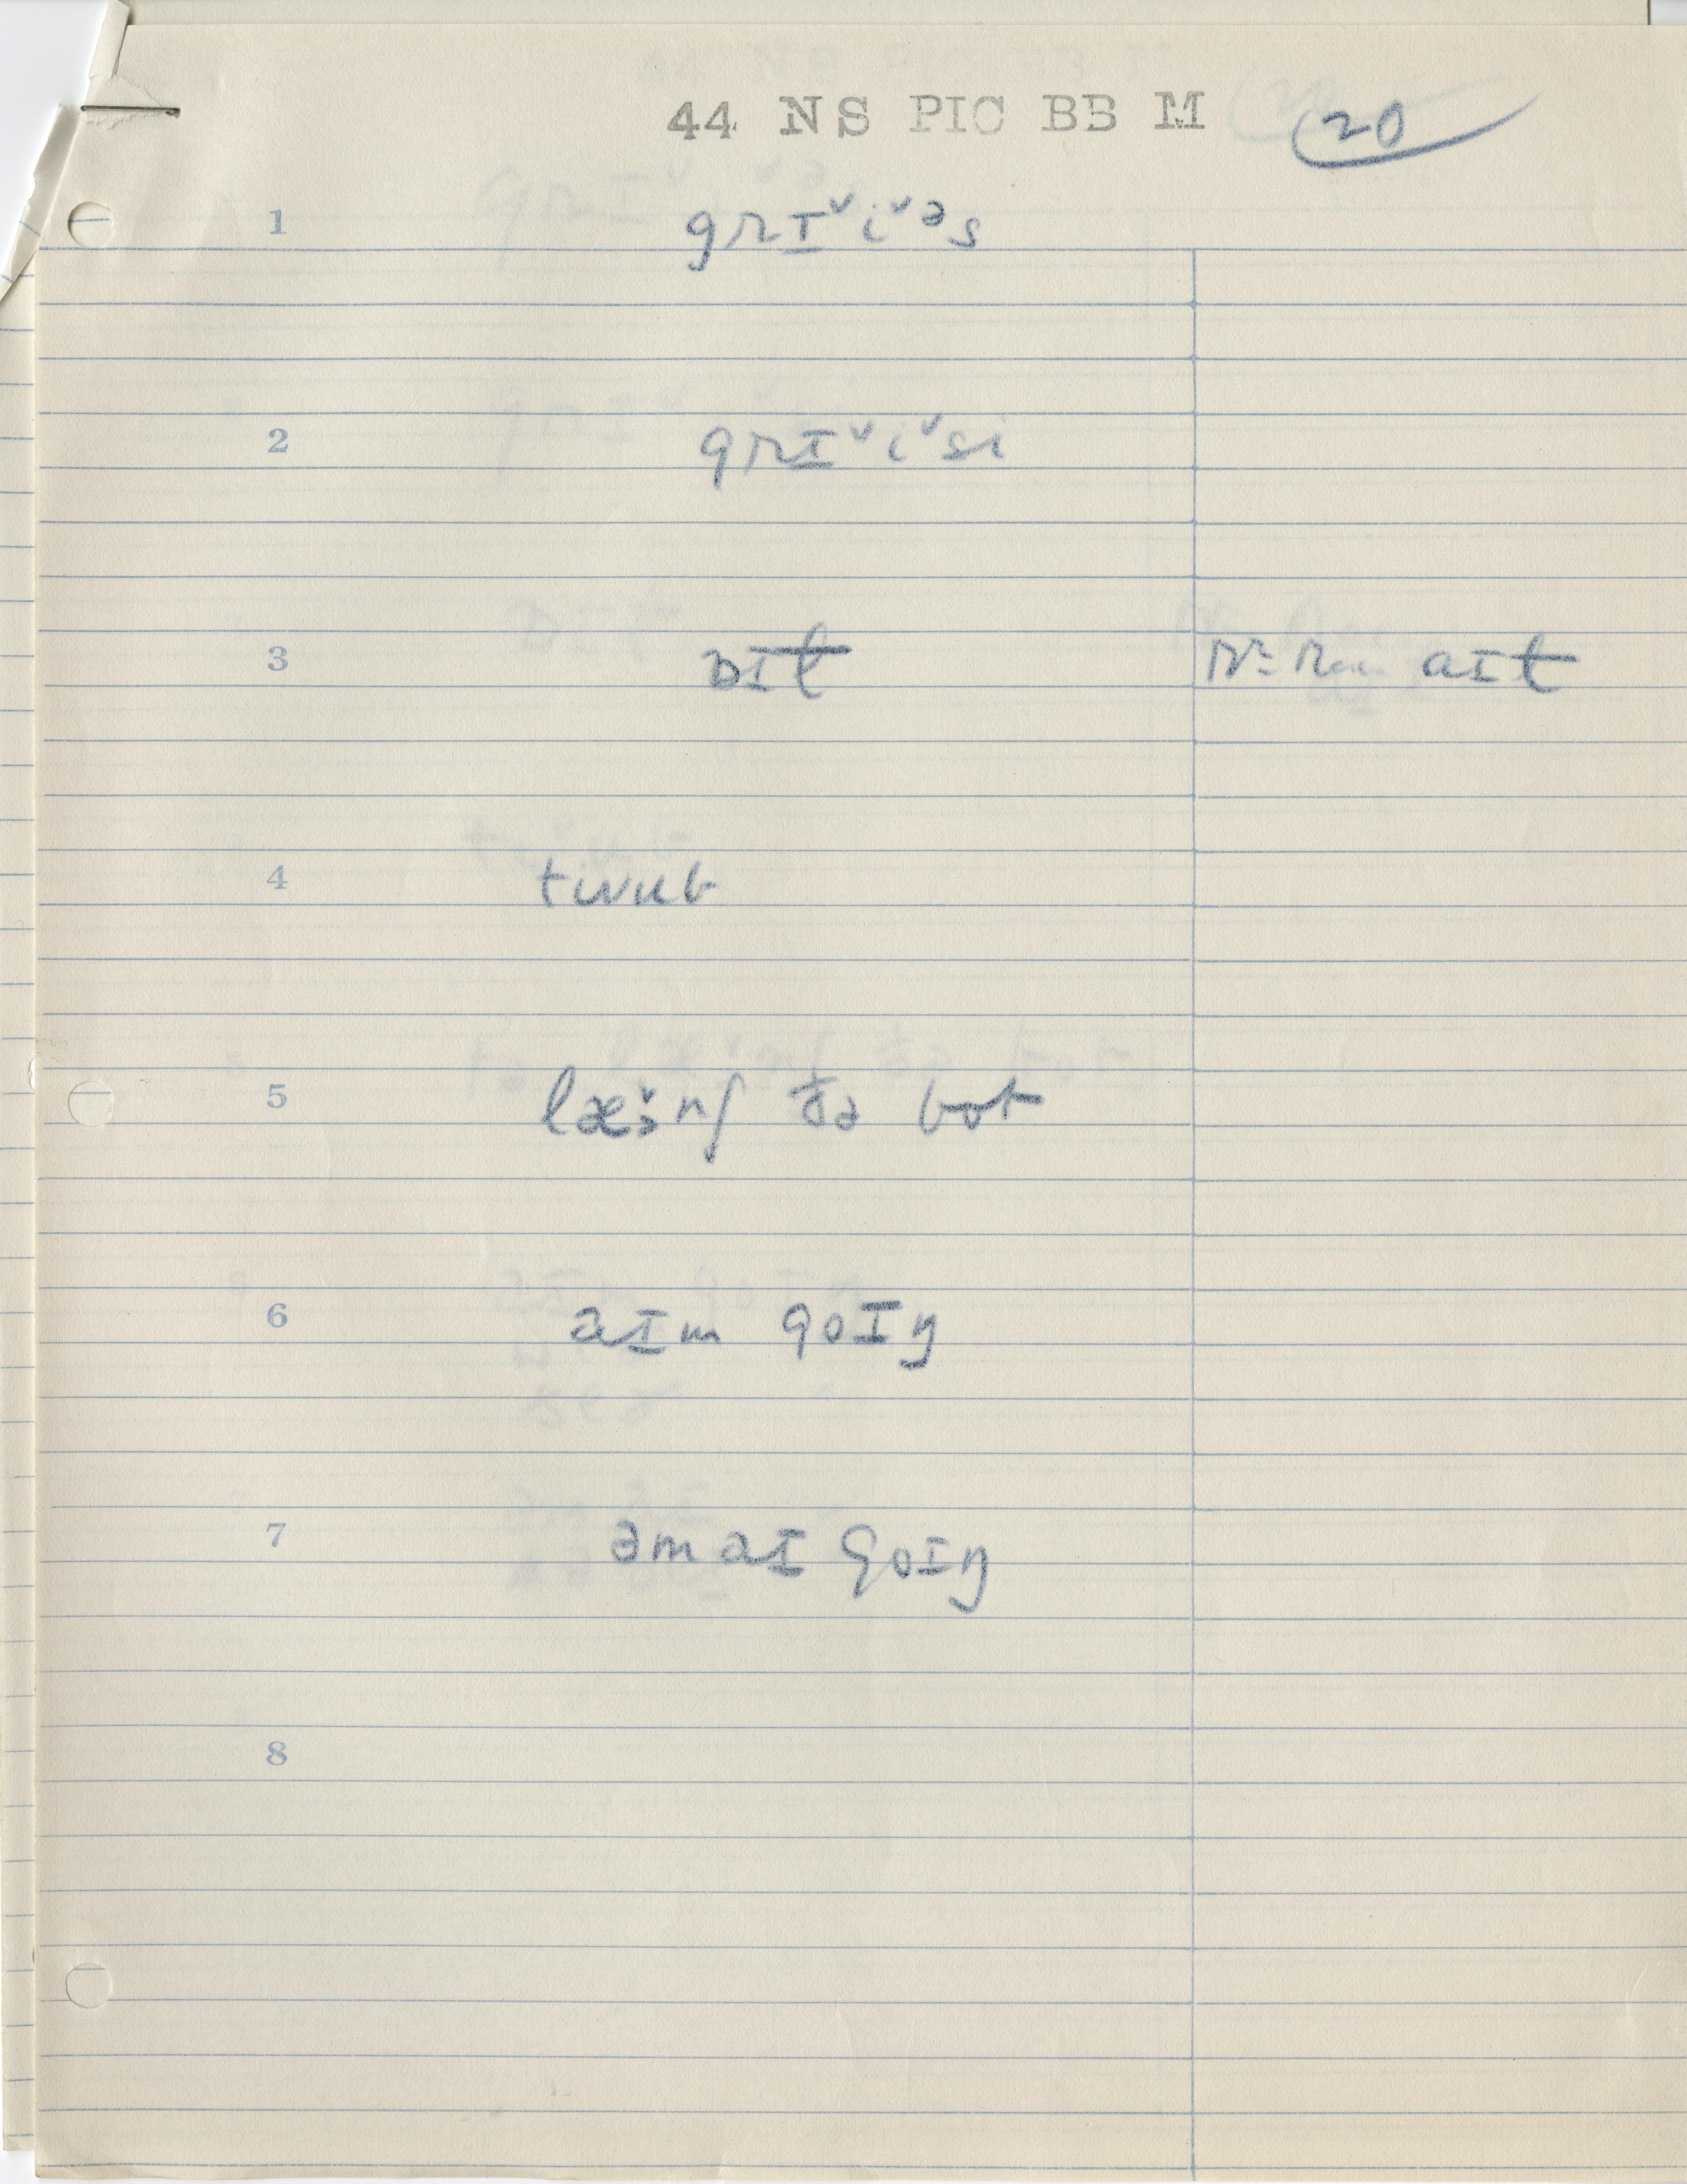 44 NS PIC BB M 20
1 grɪˇiˇəs
2 grɪˇiˇsi
3 ɒɪt aɪt
4 twub
5 læə̌nʃ ðə bot
6 aɪm goɪŋ
7 əm aɪ goɪŋ
8